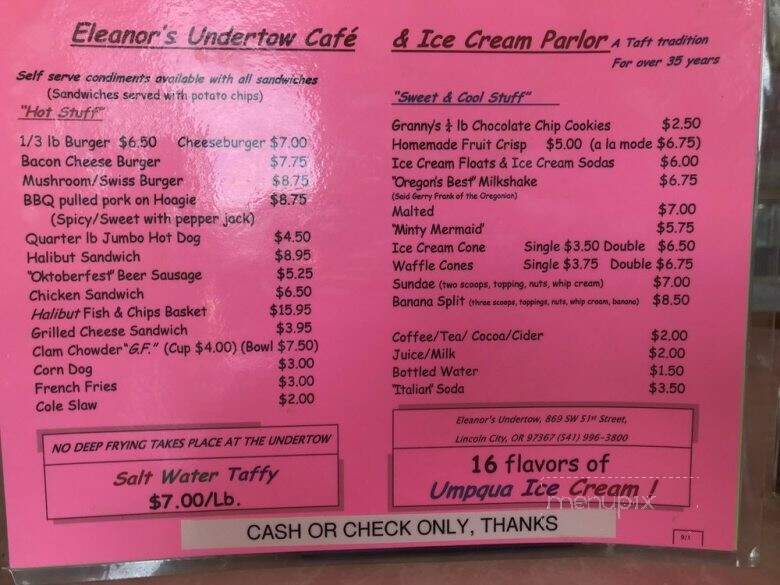 Eleanor's Undertow Café & Ice Cream Parlor A Taft tradition
For over 35 years
Self serve condiments available with all sandwiches
(Sandwiches served with potato chips)
"Hot Stuff"
1/3 lb Burger $6.50 Cheeseburger $7.00
Bacon Cheese Burger $7.75
Mushroom/Swiss Burger $8.75
BBQ pulled pork on Hoagie $8.75
(Spicy/Sweet with pepper jack)
Quarter lb Jumbo Hot Dog $4.50
Halibut Sandwich $8.95
"Oktoberfest" Beer Sausage $5.25
Chicken Sandwich $6.50
Halibut Fish & Chips Basket $15.95
Grilled Cheese Sandwich $3.95
Clam Chowder "G.F." (Cup $4.00) (Bowl $7.50)
Corn Dog $3.00
French Fries $3.00
Cole Slaw $2.00
NO DEEP FRYING TAKES PLACE AT THE UNDERTOW
Salt Water Taffy
$7.00/Lb.
"Sweet & Cool Stuff"
Granny's ¼ lb Chocolate Chip Cookies $2.50
Homemade Fruit Crisp $5.00 (a la mode $6.75)
Ice Cream Floats & Ice Cream Sodas $6.00
"Oregon's Best" Milkshake $6.75
(Said Gerry Frank of the Oregonian)
Malted $7.00
"Minty Mermaid" $5.75
Ice Cream Cone Single $3.50 Double $6.50
Waffle Cones Single $3.75 Double $6.75
Sundae (two scoops, topping, nuts, whip cream) $7.00
Banana Split (three scoops, toppings, nuts, whip cream, banana) $8.50
Coffee/Tea/ Cocoa/Cider $2.00
Juice/Milk $2.00
Bottled Water $1.50
"Italian" Soda $3.50
Eleanor's Undertow, 869 SW 51st Street,
Lincoln City, OR 97367 (541) 996-3800
16 flavors of
Umpqua Ice Cream !
menupix
CASH OR CHECK ONLY, THANKS
9/1